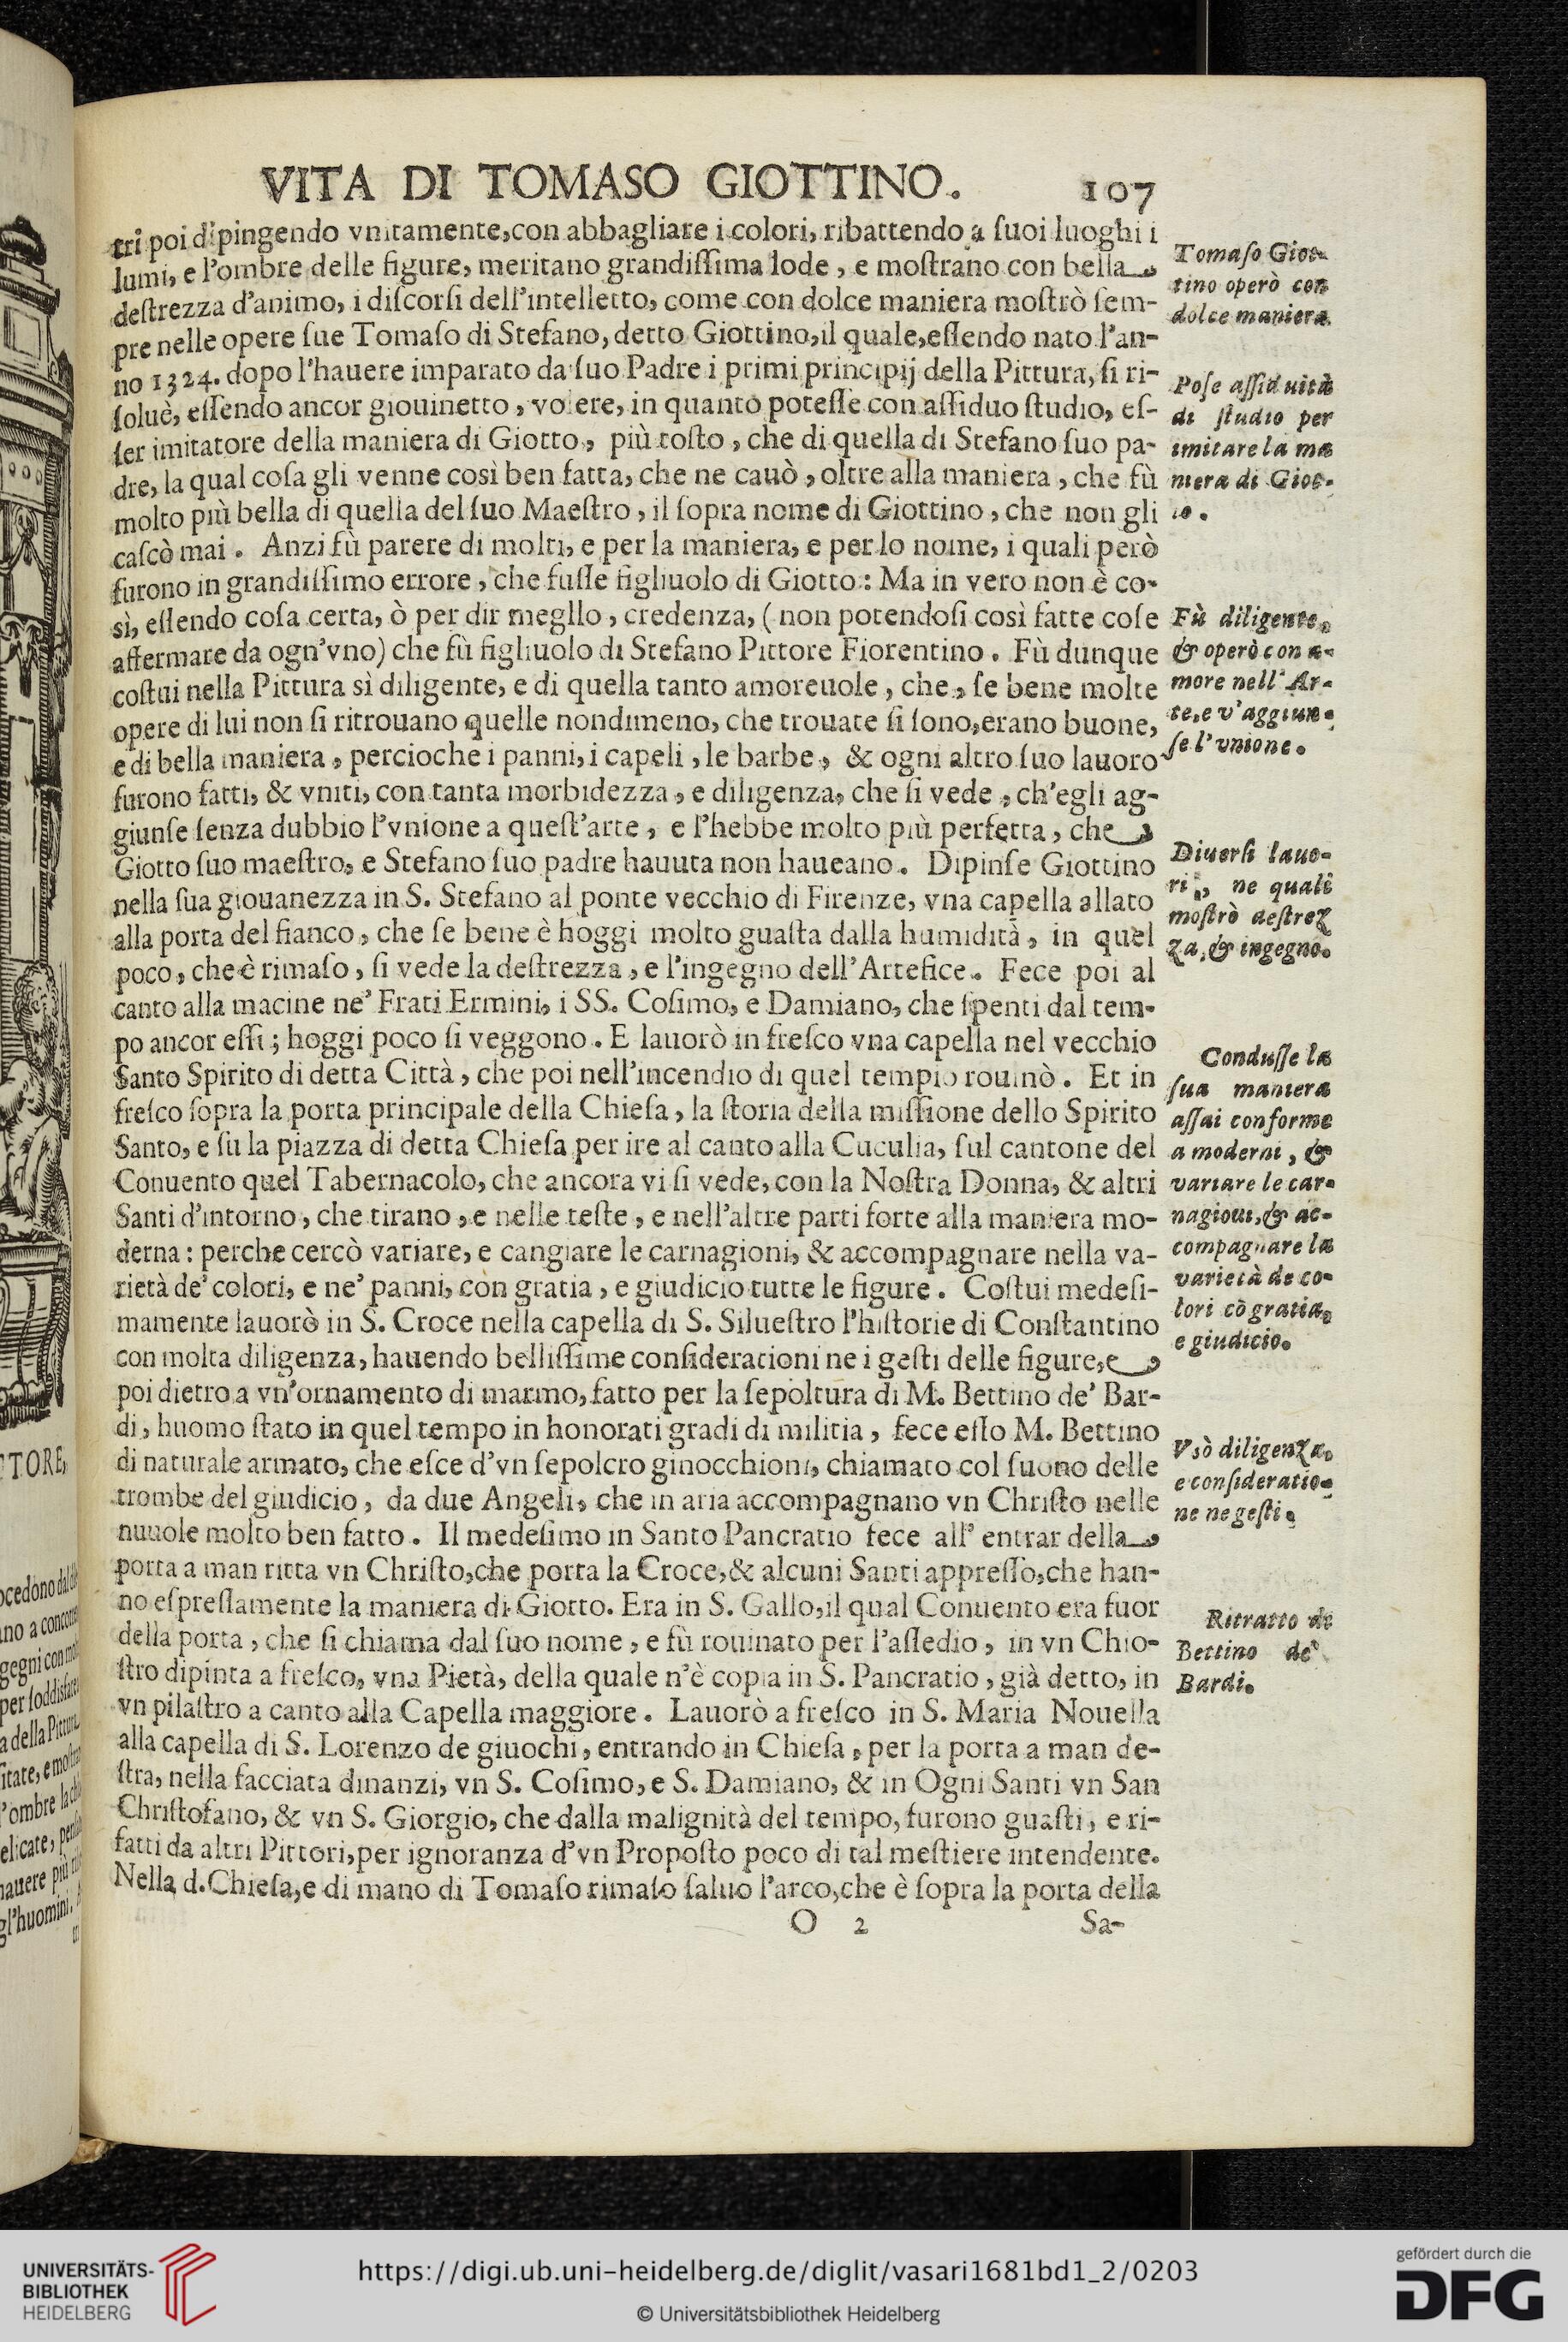 VITA DI TOMASO GIOTTINO. 107
tri poi dipingendo vnitamente,con abbagliare i colori, ribattendo a ſuoi luoghi i
lumi, e l'ombre delle figure, meritano grandiſſima lode, e moſtrano con bella
deſtrezza d'animo, i diſcorſi dell'intelletto, come con dolce maniera moſtrò ſem-
pre nelle opere ſue Tomaſo di Stefano, detto Giottino,il quale,eſſendo nato l'an-
no 1324. dopo l'hauere imparato da ſuo Padre i primi principij della Pittura, ſi ri-
ſoluè, eſſendo ancor giouinetto, volere, in quanto poteſſe con aſſiduo ſtudio, eſ-
ſer imitatore della maniera di Giotto, più toſto, che di quella di Stefano ſuo pa-
dre, la qual coſa gli venne così ben fatta, che ne cauò, oltre alla maniera, che fù
molto più bella di quella del ſuo Maeſtro, il ſopra nome di Giottino, che non gli
caſcò mai. Anzi fù parere di molti, e per la maniera, e per lo nome, i quali però
furono in grandiſſimo errore, che fuſſe figliuolo di Giotto: Ma in vero non è co-
sì, eſſendo coſa certa, ò per dir megllo, credenza, (non potendoſi così fatte coſe
affermare da ogn'vno) che fù figliuolo di Stefano Pittore Fiorentino. Fù dunque
coſtui nella Pittura sì diligente, e di quella tanto amoreuole, che, ſe bene molte
opere di lui non ſi ritrouano quelle nondimeno, che trouate ſi ſono,erano buone,
e di bella maniera, percioche i panni, i capeli, le barbe, & ogni altro ſuo lauoro
furono fatti, & vniti, con tanta morbidezza, e diligenza, che ſi vede, ch'egli ag-
giunſe ſenza dubbio l'vnione a queſt'arte, e l'hebbe molto più perfetta, che
Giotto ſuo maeſtro, e Stefano ſuo padre hauuta non haueano. Dipinſe Giottino
nella ſua giouanezza in S. Stefano al ponte vecchio di Firenze, vna capella allato
alla porta del fianco, che ſe bene è hoggi molto guaſta dalla humidità, in quel
poco, che è rimaſo, ſi vede la deſtrezza, e l'ingegno dell'Artefice. Fece poi al
canto alla macine ne' Frati Ermini, i SS. Coſimo, e Damiano, che ſpenti dal tem-
po ancor eſſi; hoggi poco ſi veggono. E lauorò in freſco vna capella nel vecchio
Santo Spirito di detta Città, che poi nell'incendio di quel tempio rouinò. Et in
freſco ſopra la porta principale della Chieſa, la ſtoria della miſſione dello Spirito
Santo, e ſu la piazza di detta Chieſa per ire al canto alla Cuculia, ſul cantone del
Conuento quel Tabernacolo, che ancora vi ſi vede, con la Noſtra Donna, & altri
Santi d'intorno, che tirano, e nelle teſte, e nell'altre parti forte alla maniera mo-
derna: perche cercò variare, e cangiare le carnagioni, & accompagnare nella va-
rietà de' colori, e ne' panni, con gratia, e giudicio tutte le figure. Coſtui medeſi-
mamente lauorò in S. Croce nella capella di S. Silueſtro l'hiſtorie di Conſtantino
con molta diligenza, hauendo belliſſime conſiderationi ne i geſti delle figure,e
poi dietro a vn'ornamento di marmo, fatto per la ſepoltura di M. Bettino de' Bar-
di, huomo ſtato in quel tempo in honorati gradi di militia, fece eſſo M. Bettino
di naturale armato, che eſce d'vn ſepolcro ginocchioni, chiamato col ſuono delle
trombe del giudicio, da due Angeli, che in aria accompagnano vn Chriſto nelle
nuuole molto ben fatto. Il medeſimo in Santo Pancratio fece all' entrar della
porta a man ritta vn Chriſto,che porta la Croce,& alcuni Santi appreſſo,che han-
no eſpreſſamente la maniera di Giotto. Era in S. Gallo,il qual Conuento era fuor
della porta, che ſi chiama dal ſuo nome, e fù rouinato per l'aſſedio, in vn Chio-
ſtro dipinta a freſco, vna Pietà, della quale n'è copia in S. Pancratio, già detto, in
vn pilaſtro a canto alla Capella maggiore. Lauorò a freſco in S. Maria Nouella
alla capella di S. Lorenzo de giuochi, entrando in Chieſa, per la porta a man de-
ſtra, nella facciata dinanzi, vn S. Coſimo, e S. Damiano, & in Ogni Santi vn San
Chriſtofano, & vn S. Giorgio, che dalla malignità del tempo, furono guaſti, e ri-
fatti da altri Pittori,per ignoranza d'vn Propoſto poco di tal meſtiere intendente.
Nella d.Chieſa,e di mano di Tomaſo rimaſo ſaluo l'arco,che è ſopra la porta della
O 2 Sa-
Tomaſo Giot-
tino operò con
dolce maniera.
Poſe aſſiduità
di ſtudio per
imitare la ma
niera di Giot-
to.
Fù diligente,
& operò con a-
more nell'Ar-
te,e v'aggiun-
ſe l'vnione.
Diuerſi lauo-
ri, ne quali
moſtrò deſtrez
za,& ingegno.
Conduſſe la
ſua maniera
aſſai conforme
a moderni, &
variare le car-
nagioni,& ac-
compagnare la
varietà de co-
lori cõ gratia,
e giudicio.
Vsò diligenza,
e conſideratio-
ne ne geſti.
Ritratto di
Bettino de'
Bardi.
TTORE,
ocedono dal
no a
gegni con
per ſoddisfare
a della Pittura
itate, e moſtra
l'ombre
elicate,
hauere più
gl'huomini,
UNIVERSITÄTS-
BIBLIOTHEK
HEIDELBERG
https://digi.ub.uni-heidelberg.de/diglit/vasari1681bd1_2/0203
© Universitätsbibliothek Heidelberg
gefördert durch die
DFG